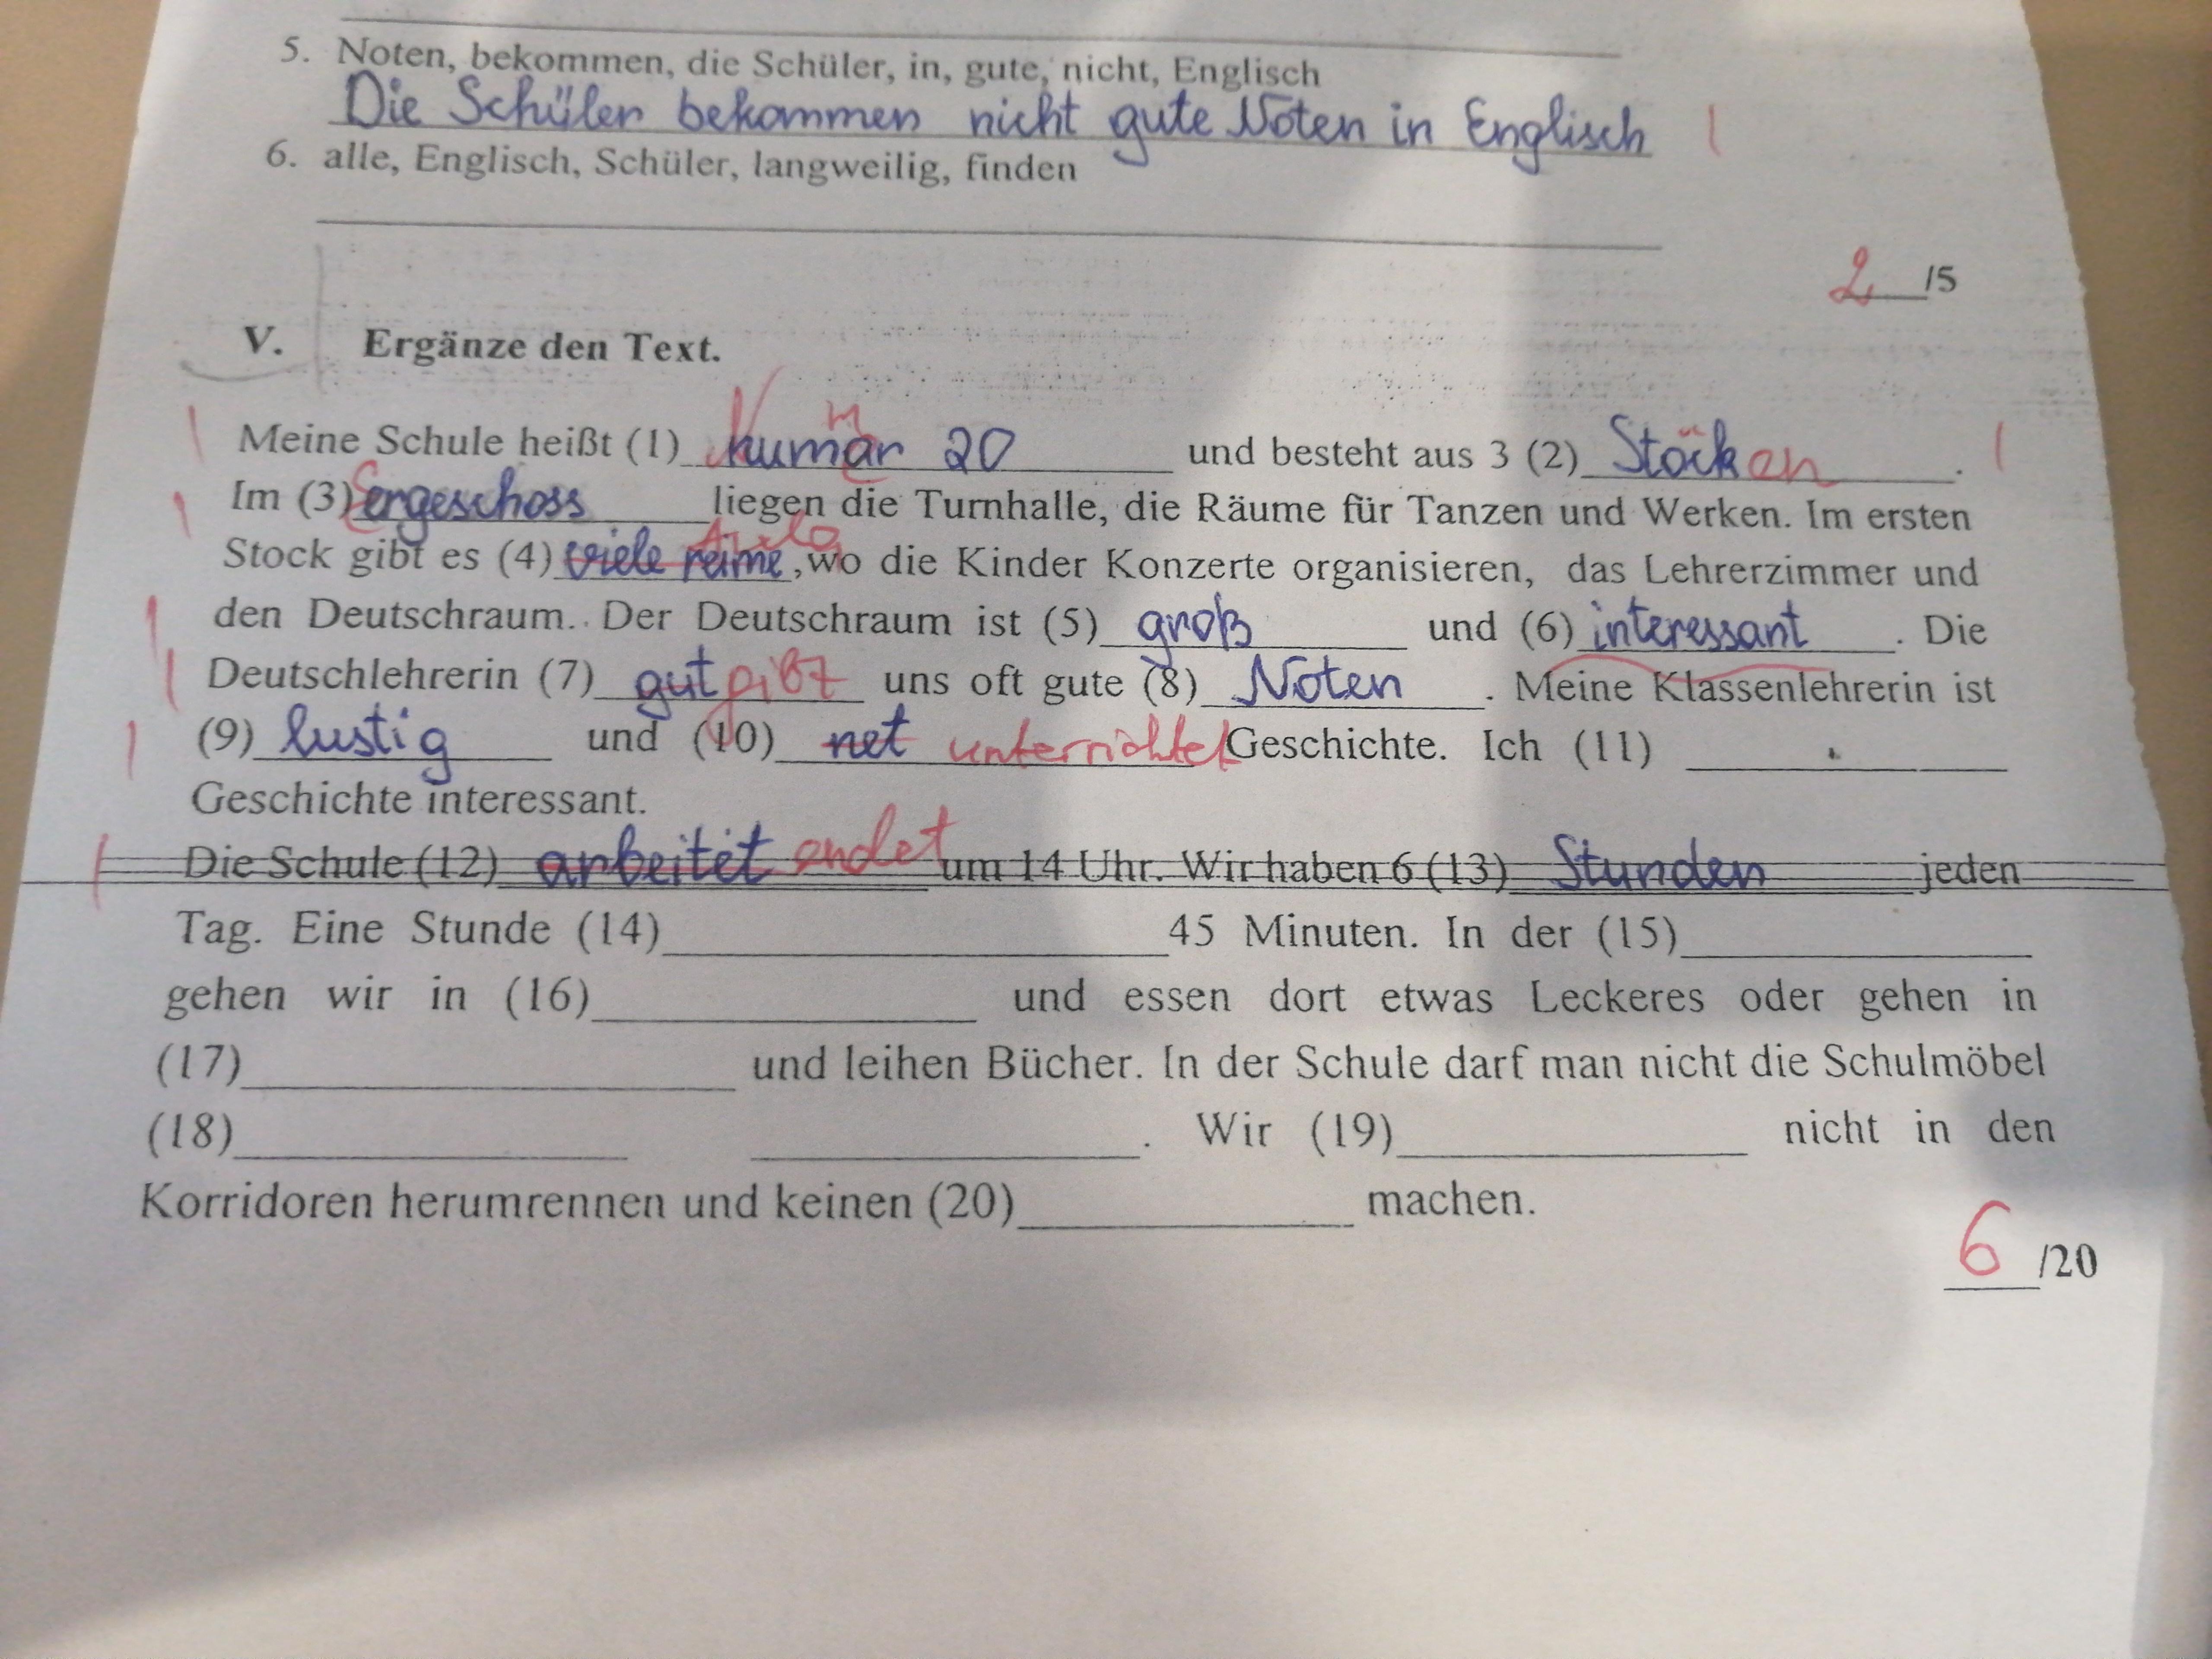 5. Noten, bekommen, die Schüler, in, gute, nicht, Englisch
Die Schüler bekommen nicht gute Noten in Englisch 1
6. alle, Englisch, Schüler, langweilig, finden
2 /5
V. Ergänze den Text.
1 Meine Schule heißt (1) Numar 20 und besteht aus 3 (2) Stöcken. 1
1 Im (3) Ergeschoss liegen die Turnhalle, die Räume für Tanzen und Werken. Im ersten
Stock gibt es (4) viele reime Aula, wo die Kinder Konzerte organisieren, das Lehrerzimmer und
1 den Deutschraum. Der Deutschraum ist (5) groß und (6) interessant. Die
1 Deutschlehrerin (7) gut gibt uns oft gute (8) Noten. Meine Klassenlehrerin ist
1 (9) lustig und (10) net unterrichtet Geschichte. Ich (11)
Geschichte interessant.
1 Die Schule (12) arbeitet endet um 14 Uhr. Wir haben 6 (13) Stunden jeden
Tag. Eine Stunde (14) 45 Minuten. In der (15)
gehen wir in (16) und essen dort etwas Leckeres oder gehen in
(17) und leihen Bücher. In der Schule darf man nicht die Schulmöbel
(18) . Wir (19) nicht in den
Korridoren herumrennen und keinen (20) machen.
6 /20